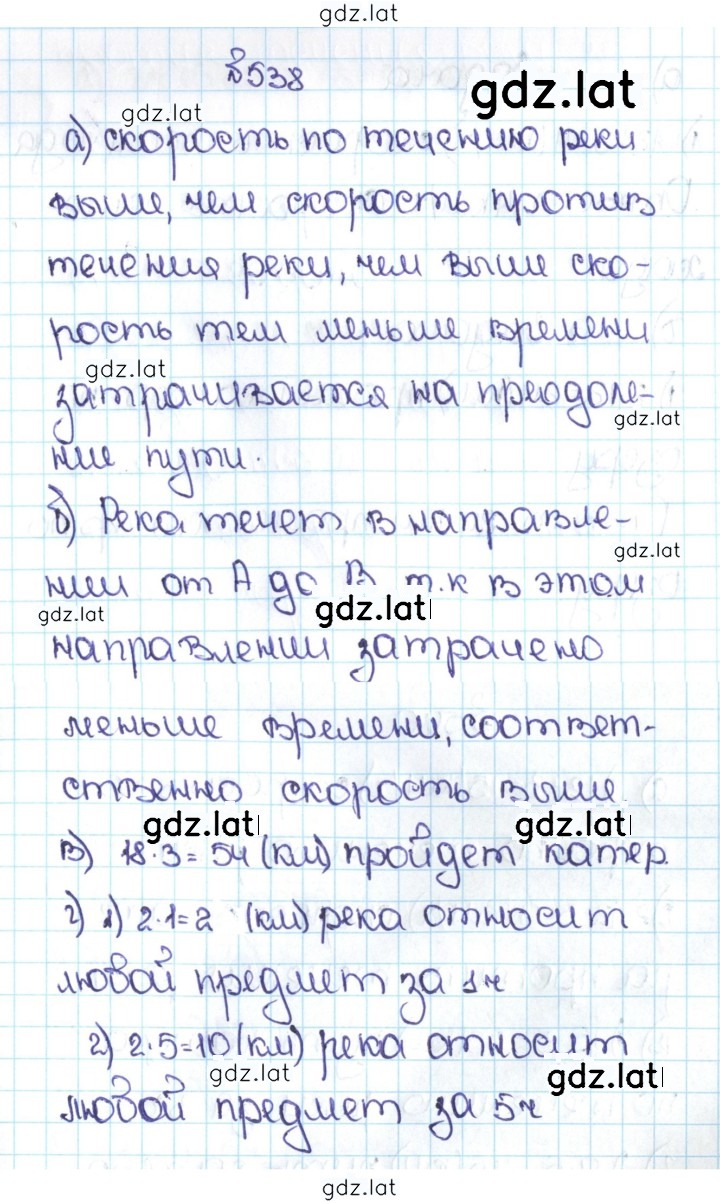 gdz.lat
№538
gdz.lat
gdz.lat
а) скорость по течению реки
выше, чем скорость против
течения реки, чем выше ско-
рость тем меньше времени
gdz.lat
затрачивается на преодоле-
gdz.lat
ние пути.
б) Река течет в направле-
gdz.lat
нии от А до В т.к в этом
gdz.lat
gdz.lat
направлении затрачено
меньше времени, соответ-
ственно скорость выше
gdz.lat
gdz.lat
в) 18·3=54 (км) пройдет катер.
г) 1) 2·1=2 (км) река относит
любой предмет за 1ч
2) 2·5=10 (км) река относит
gdz.lat
gdz.lat
любой предмет за 5ч
gdz.lat